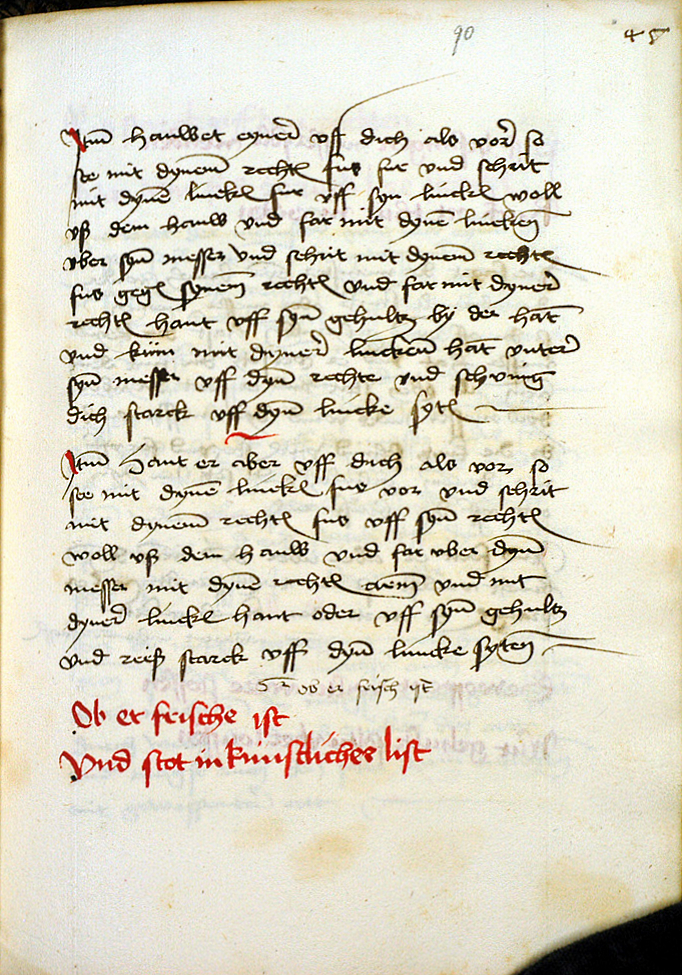 90
45
Itm̄ hauwet eyner̄ vff dich als vor̄ so
stee mit dynem̄ rechtē fus fur vnd schrit
mit dynē linckē fur vff syn linckē woll
vß dem hauw vnd far mit dynē lincken̄
vber syn̄ messer vnd schrit mit dynem̄ rechtē
fus gegē synem̄ rechtē vnd far mit dyner̄
rechtē hant vff syn̄ gehultz by der hāt
vnd kūm mit dyner̄ lincken̄ hāt vnter̄
syn̄ messer vff dyn̄ rechte vnd schwing
dich starck vff dyn̄ lincke sytē
Itm̄ haut er aber vff dich als vor so
stee mit dynē linckē fus vor vnd schrit
mit dynem̄ rechtē fus vff syn̄ rechtē
woll vß dem hauw vnd far vber dyn̄
messer mit dynē rechtē arem̄ vnd mit
dyner̄ linckē hant oder vff syn̄ gehultz
vnd reiß starck vff dyn̄ lincke syten̄
ob er frisch ist
Ob er frische ist
Vnd stet in künstlicher list